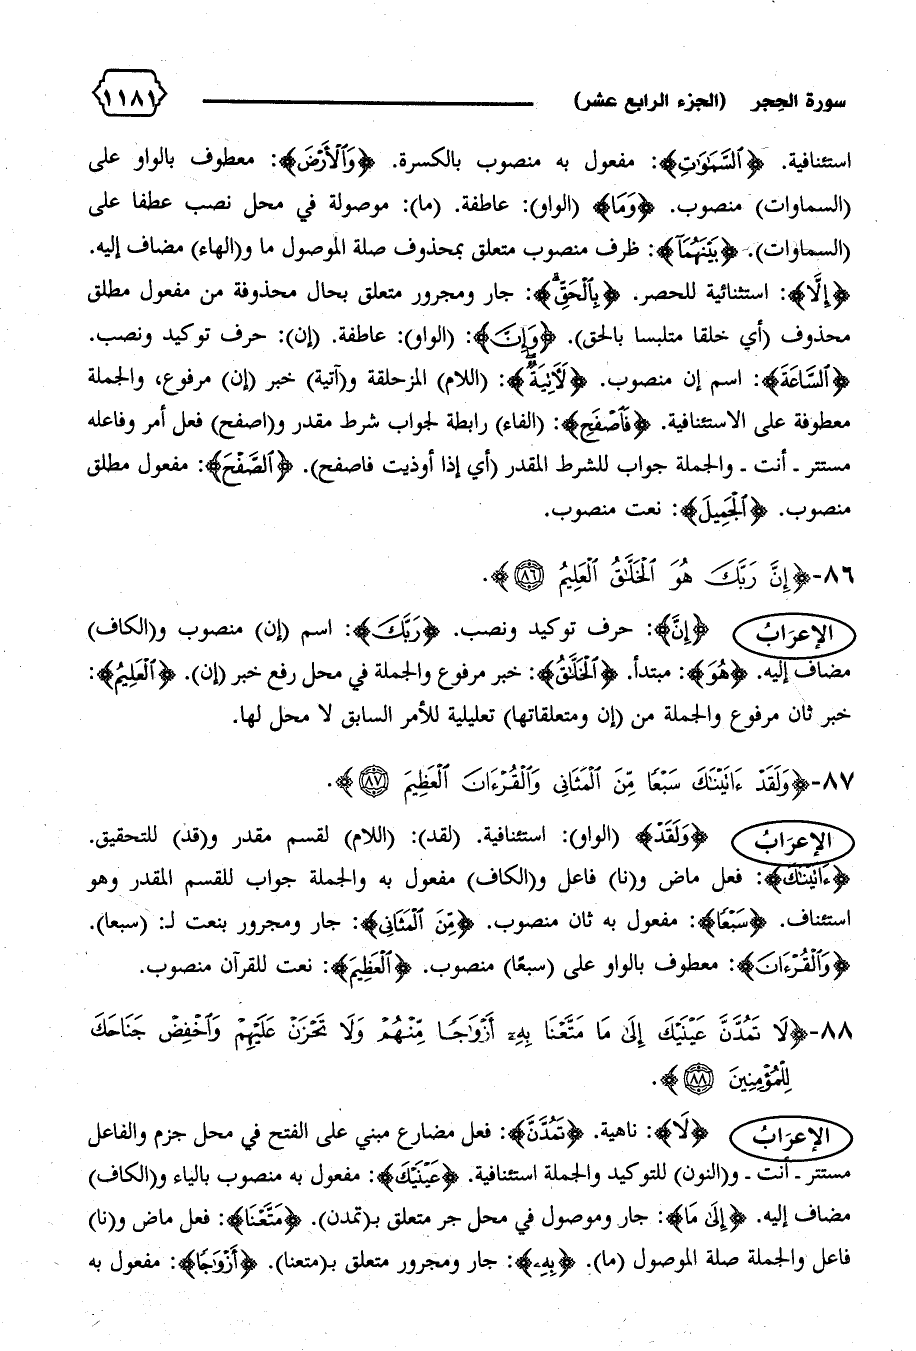 سورة الحجر (الجزء الرابع عشر) ١١٨١
استئنافية. ﴿ٱلسَّمَٰوَٰتِ﴾: مفعول به منصوب بالكسرة. ﴿وَٱلْأَرْضَ﴾: معطوف بالواو على
(السماوات) منصوب. ﴿وَمَا﴾ (الواو): عاطفة. (ما): موصولة في محل نصب عطفا على
(السماوات). ﴿بَيْنَهُمَآ﴾: ظرف منصوب متعلق بمحذوف صلة الموصول ما و(الهاء) مضاف إليه.
﴿إِلَّا﴾: استثنائية للحصر. ﴿بِٱلْحَقِّ ۗ﴾: جار ومجرور متعلق بحال محذوفة من مفعول مطلق
محذوف (أي خلقا متلبسا بالحق). ﴿وَإِنَّ﴾: (الواو): عاطفة. (إن): حرف توكيد ونصب.
﴿ٱلسَّاعَةَ﴾: اسم إن منصوب. ﴿لَأٓتِيَةٌ ۖ﴾: (اللام) المزحلقة و(آتية) خبر (إن) مرفوع، والجملة
معطوفة على الاستئنافية. ﴿فَٱصْفَحِ﴾: (الفاء) رابطة لجواب شرط مقدر و(اصفح) فعل أمر وفاعله
مستتر ـ أنت ـ والجملة جواب للشرط المقدر (أي إذا أوذيت فاصفح). ﴿ٱلصَّفْحَ﴾: مفعول مطلق
منصوب. ﴿ٱلْجَمِيلَ﴾: نعت منصوب.
٨٦-﴿إِنَّ رَبَّكَ هُوَ ٱلْخَلَّٰقُ ٱلْعَلِيمُ ٨٦﴾.
الإعرَابُ ﴿إِنَّ﴾: حرف توكيد ونصب. ﴿رَبَّكَ﴾: اسم (إن) منصوب و(الكاف)
مضاف إليه. ﴿هُوَ﴾: مبتدأ. ﴿ٱلْخَلَّٰقُ﴾: خبر مرفوع والجملة في محل رفع خبر (إن). ﴿ٱلْعَلِيمُ﴾:
خبر ثان مرفوع والجملة من (إن ومتعلقاتها) تعليلية للأمر السابق لا محل لها.
٨٧-﴿وَلَقَدْ ءَاتَيْنَٰكَ سَبْعًا مِّنَ ٱلْمَثَانِى وَٱلْقُرْءَانَ ٱلْعَظِيمَ ٨٧﴾.
الإعرَابُ ﴿وَلَقَدْ﴾ (الواو): استئنافية. (لقد): (اللام) لقسم مقدر و(قد) للتحقيق.
﴿ءَاتَيْنَٰكَ﴾: فعل ماض و(نا) فاعل و(الكاف) مفعول به والجملة جواب للقسم المقدر وهو
استئناف. ﴿سَبْعًا﴾: مفعول به ثان منصوب. ﴿مِّنَ ٱلْمَثَانِى﴾: جار ومجرور بنعت لـ: (سبعا).
﴿وَٱلْقُرْءَانَ﴾: معطوف بالواو على (سبعًا) منصوب. ﴿ٱلْعَظِيمَ﴾: نعت للقرآن منصوب.
٨٨-﴿لَا تَمُدَّنَّ عَيْنَيْكَ إِلَىٰ مَا مَتَّعْنَا بِهِۦٓ أَزْوَٰجًا مِّنْهُمْ وَلَا تَحْزَنْ عَلَيْهِمْ وَٱخْفِضْ جَنَاحَكَ
لِلْمُؤْمِنِينَ ٨٨﴾.
الإعرَابُ ﴿لَا﴾: ناهية. ﴿تَمُدَّنَّ﴾: فعل مضارع مبني على الفتح في محل جزم والفاعل
مستتر ـ أنت ـ و(النون) للتوكيد والجملة استئنافية. ﴿عَيْنَيْكَ﴾: مفعول به منصوب بالياء و(الكاف)
مضاف إليه. ﴿إِلَىٰ مَا﴾: جار وموصول في محل جر متعلق بـ(تمدن). ﴿مَتَّعْنَا﴾: فعل ماض و(نا)
فاعل والجملة صلة الموصول (ما). ﴿بِهِۦٓ﴾: جار ومجرور متعلق بـ(متعنا). ﴿أَزْوَٰجًا﴾: مفعول به